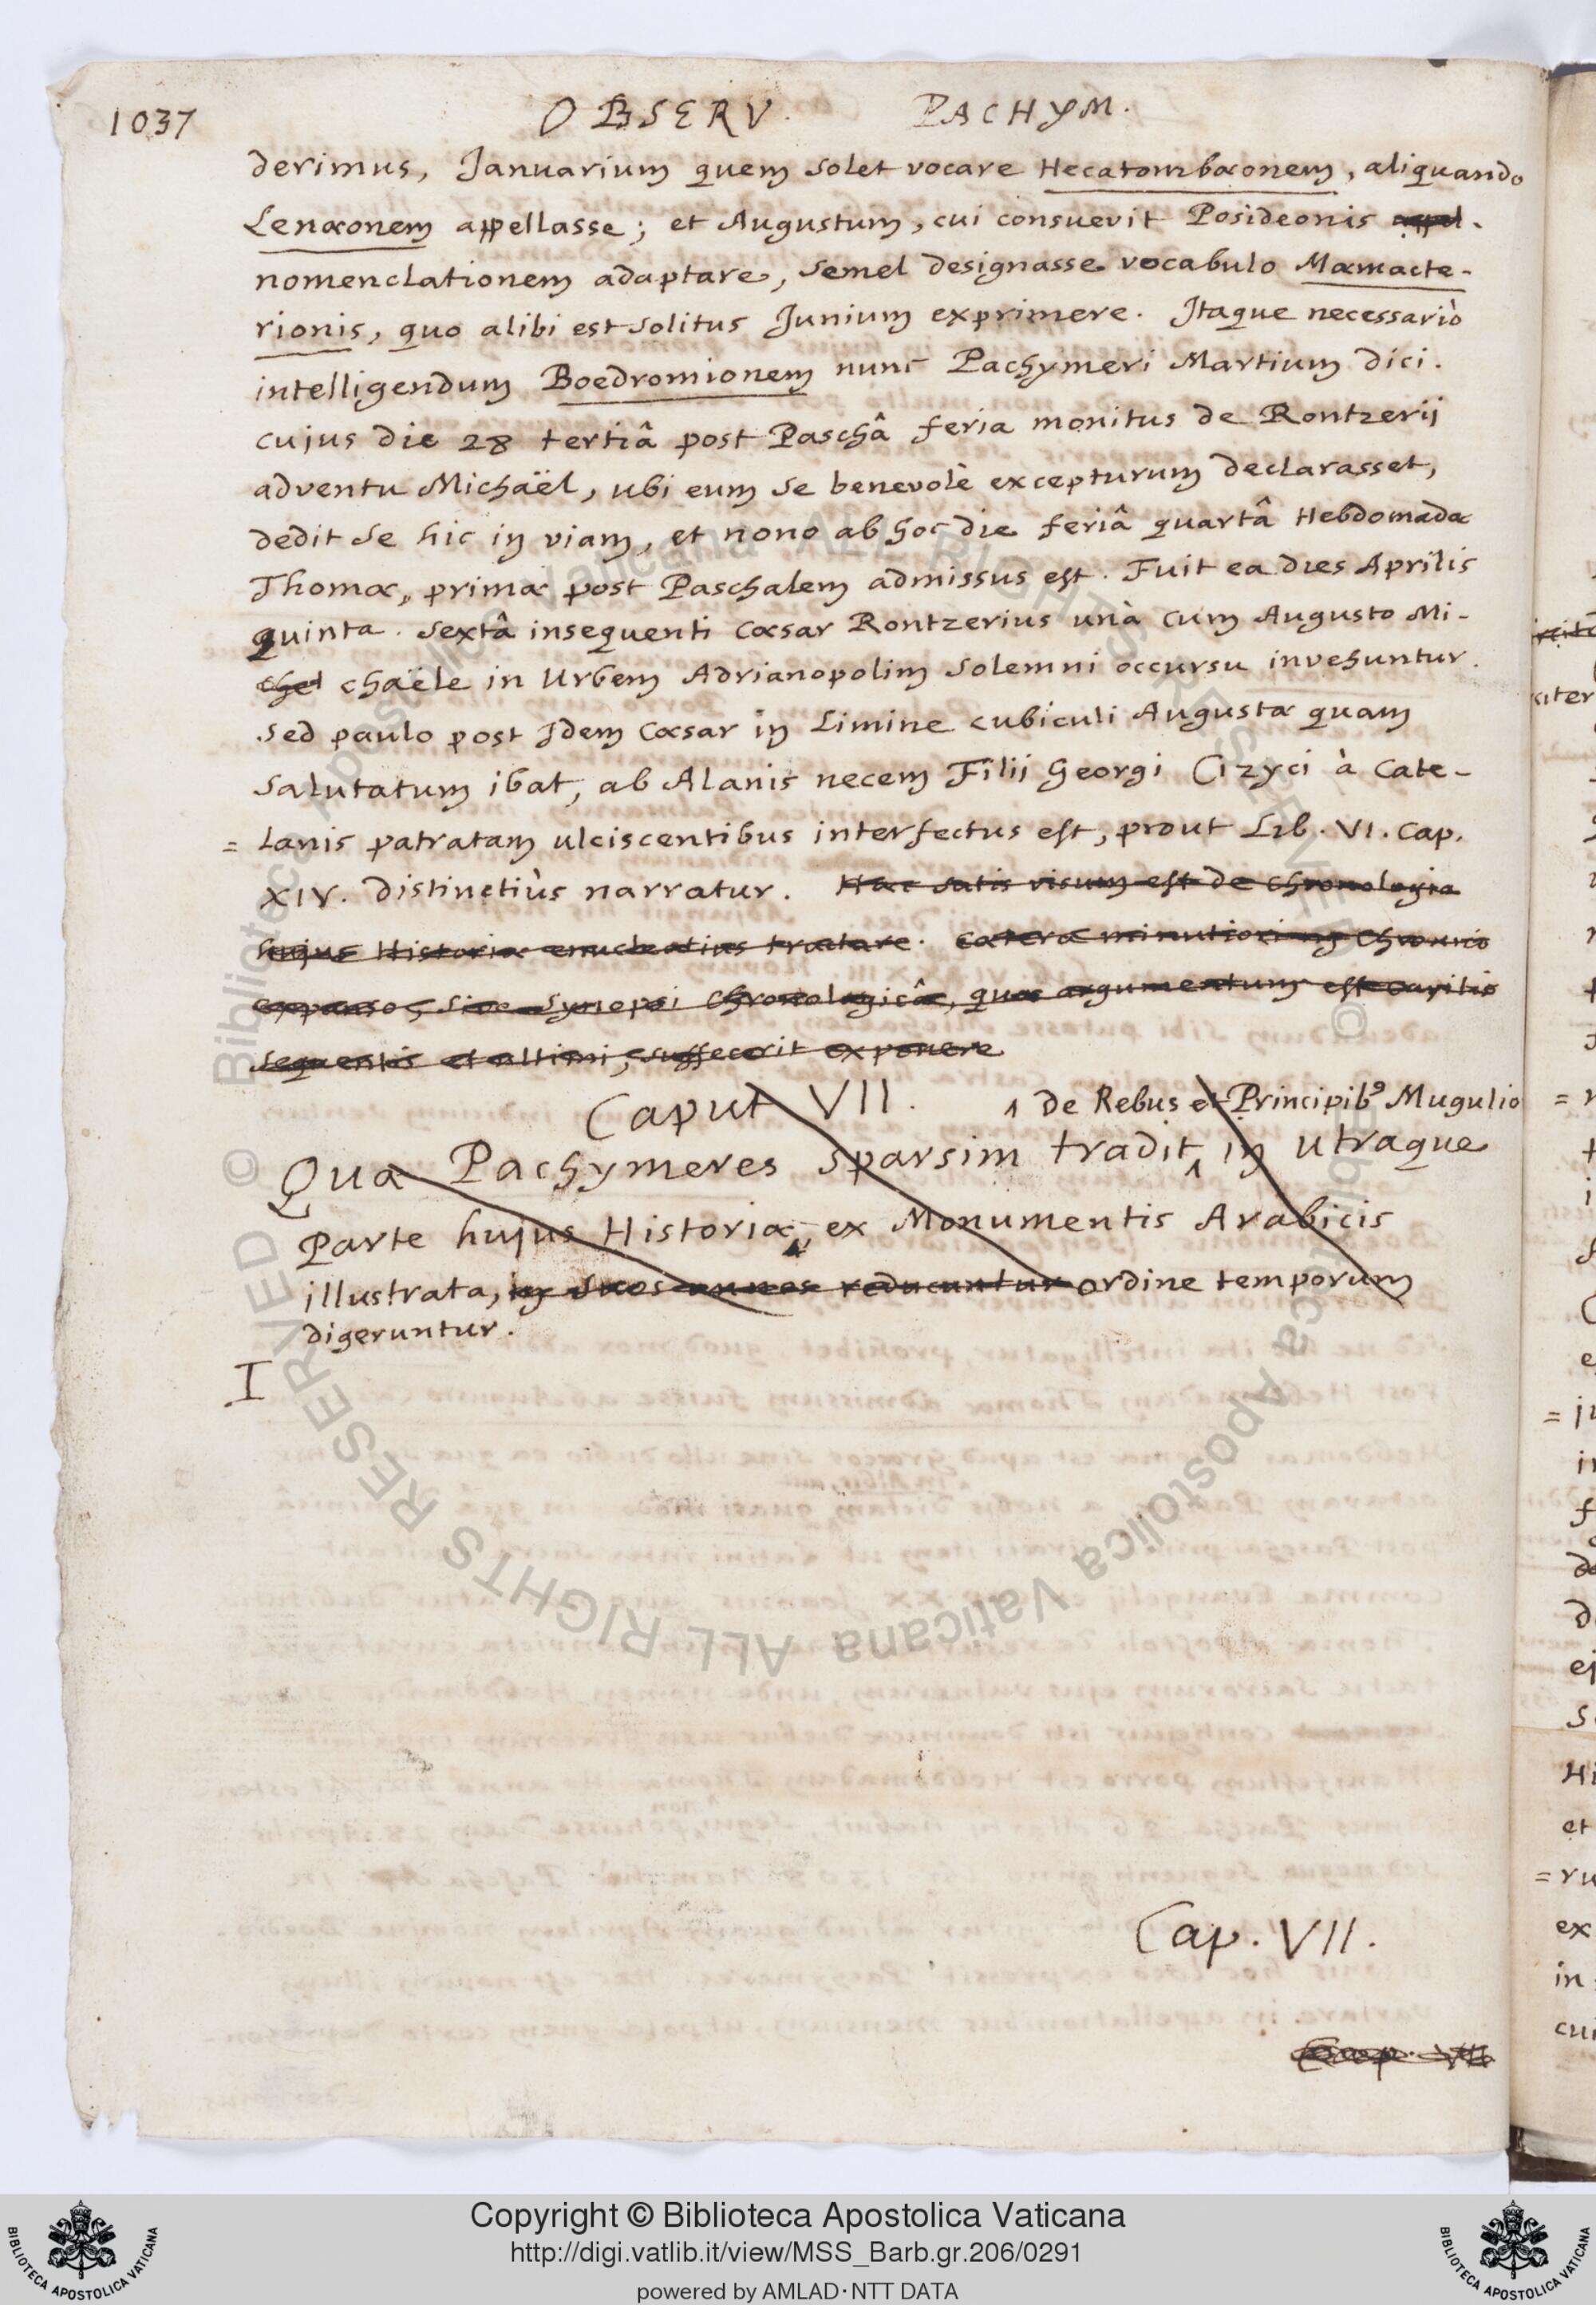 1037
OBSERV. PACHYM.
derimus, Januarium quem solet vocare Hecatombæonem, aliquando
Lenæonem appellasse; et Augustum, cui consuevit Posideonis appel.
nomenclationem adaptare, semel designasse vocabulo Mæmacte-
rionis, quo alibi est solitus Junium exprimere. Itaque necessariò
intelligendum Boedromionem nunc Pachymeri Martium dici.
cujus die 28 tertiâ post Paschâ feria monitus de Rontzerij
adventu Michaël, ubi eum se benevolè excepturum declarasset,
dedit se hic in viam, et nono ab hoc die feriâ quartâ Hebdomadæ
Thomæ, primæ post Paschalem admissus est. Fuit ea dies Aprilis
quinta. Sextâ insequenti Cæsar Rontzerius unà cum Augusto Mi-
chel chaële in Urbem Adrianopolim solemni occursu invehuntur.
Sed paulo post Idem Cæsar in Limine cubiculi Augustæ quam
salutatum ibat, ab Alanis necem Filii Georgi Cizyci à Cate-
= lanis patratam ulciscentibus interfectus est, prout Lib. VI. Cap.
XIV. distinctiùs narratur. Hæc satis visum est de Chronologia
hujus Historiæ enucleatius tractare. Cætera minutiori in Chronico
expanso, sive Synopsi Chronologicâ, quæ argumentum est capitis
sequentis et ultimi, suffecerit exponere
Caput VII. ^ de Rebus et Principib9 Mugulio
Quæ Pachymeres sparsim tradit ^ in utraque
Parte hujus Historiæ, ex Monumentis Arabicis
illustrata, in suos annos reducuntur ordine temporum
digeruntur.
I
Cap. VII.
Cap. VII
Copyright © Biblioteca Apostolica Vaticana
http://digi.vatlib.it/view/MSS_Barb.gr.206/0291
powered by AMLAD·NTT DATA
BIBLIOTECA APOSTOLICA VATICANA
BIBLIOTECA APOSTOLICA VATICANA
© Biblioteca Apostolica Vaticana ALL RIGHTS RESERVED
© Biblioteca Apostolica Vaticana ALL RIGHTS RESERVED